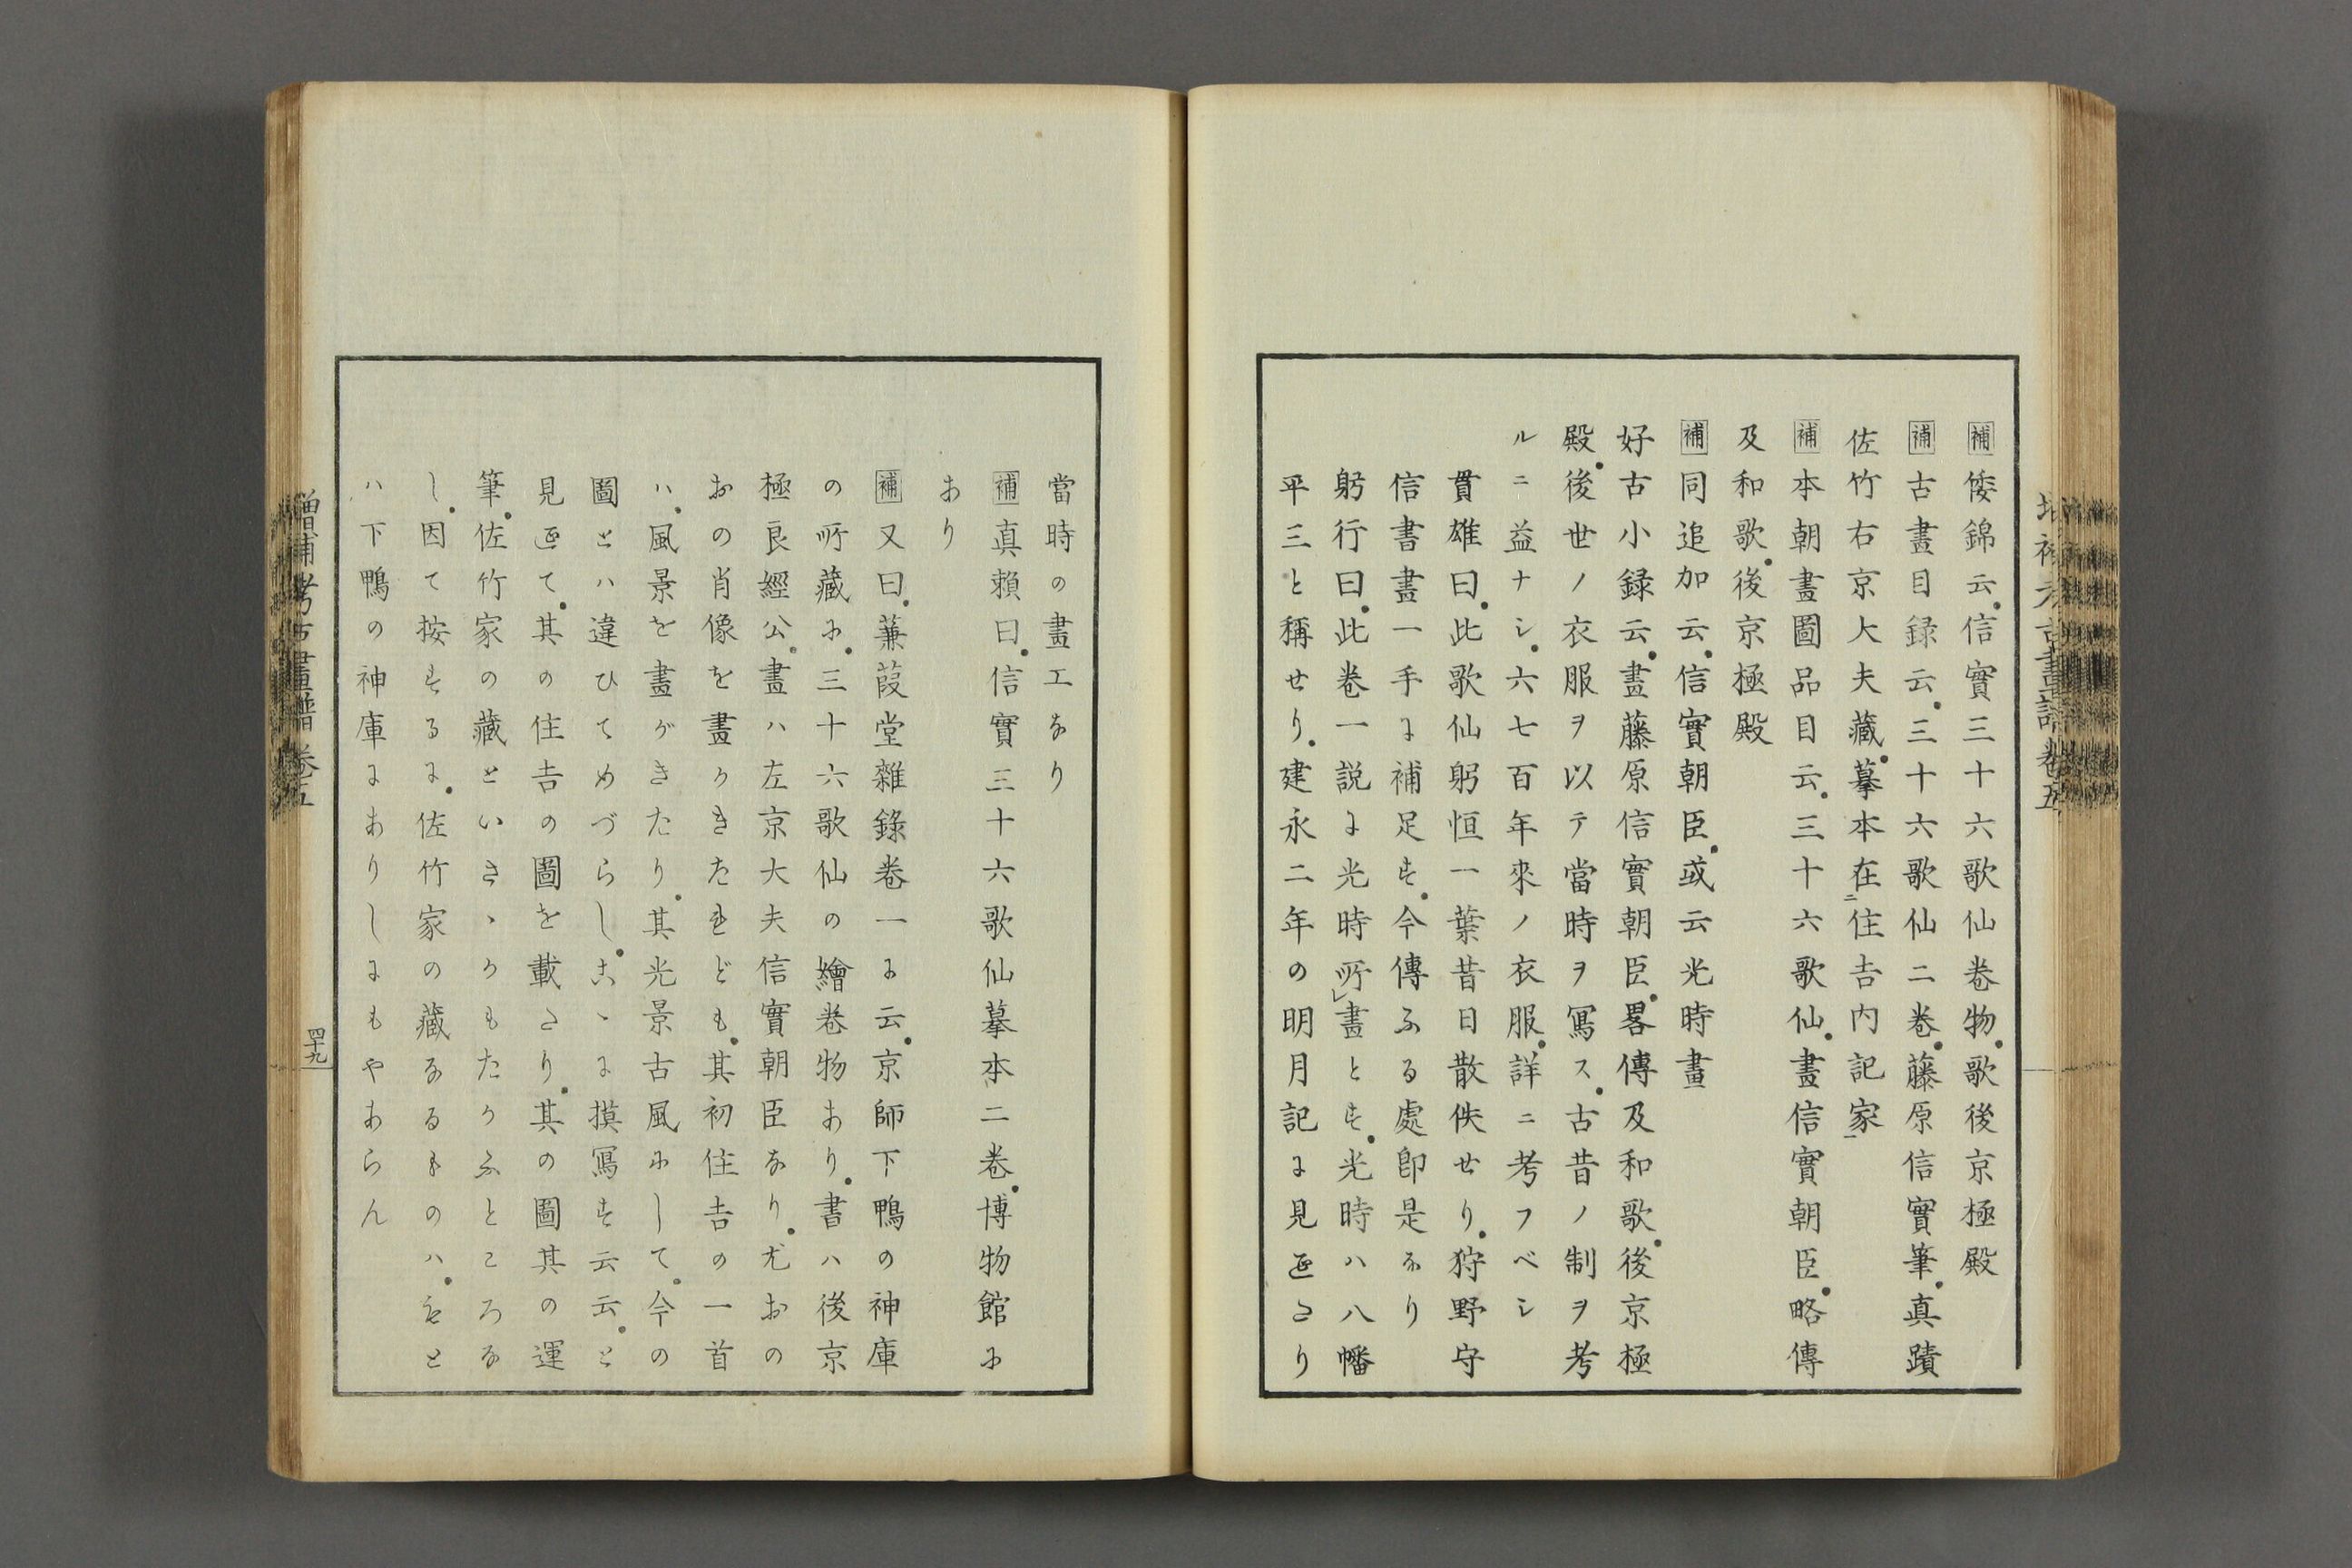 補倭錦云、信實三十六歌仙卷物、歌後京極殿
補古畫目録云、三十六歌仙二卷、藤原信實筆、真蹟
佐竹右京大夫藏、摹本在二住吉内記家一
補本朝畫圖品目云、三十六歌仙、畫信實朝臣、略傳
及和歌、後京極殿
補同追加云、信實朝臣、或云光時畫
好古小録云、畫藤原信實朝臣、畧傳及和歌、後京極
殿、後世ノ衣服ヲ以テ當時ヲ寫ス、古昔ノ制ヲ考
ルニ益ナシ、六七百年來ノ衣服、詳ニ考フベシ
貫雄曰、此歌仙躬恒一葉昔日散佚せり、狩野守
信書畫一手に補足す、今傳ふる處卽是なり
躬行曰、此卷一説に光時所レ畫とす、光時ハ八幡
平三と稱せり、建永二年の明月記に見えたり
當時の畫工なり
補真頼曰、信實三十六歌仙摹本二卷、博物館に
あり
補又曰、蒹葭堂雜錄卷一に云、京師下鴨の神庫
の所藏に、三十六歌仙の繪卷物あり、書ハ後京
極良經公、畫ハ左京大夫信實朝臣なり、尤おの
おの肖像を畫かきたれども、其初住吉の一首
ハ、風景を畫がきたり、其光景古風にして、今の
圖とハ違ひてめづらし、こゝに摸寫す云云、と
見えて、其の住吉の圖を載たり、其の圖其の運
筆、佐竹家の藏といさゝかもたかふところな
し、因て按するに、佐竹家の藏なるものハ、もと
ハ下鴨の神庫にありしにもやあらん
増補考古畫譜 卷五
四十九